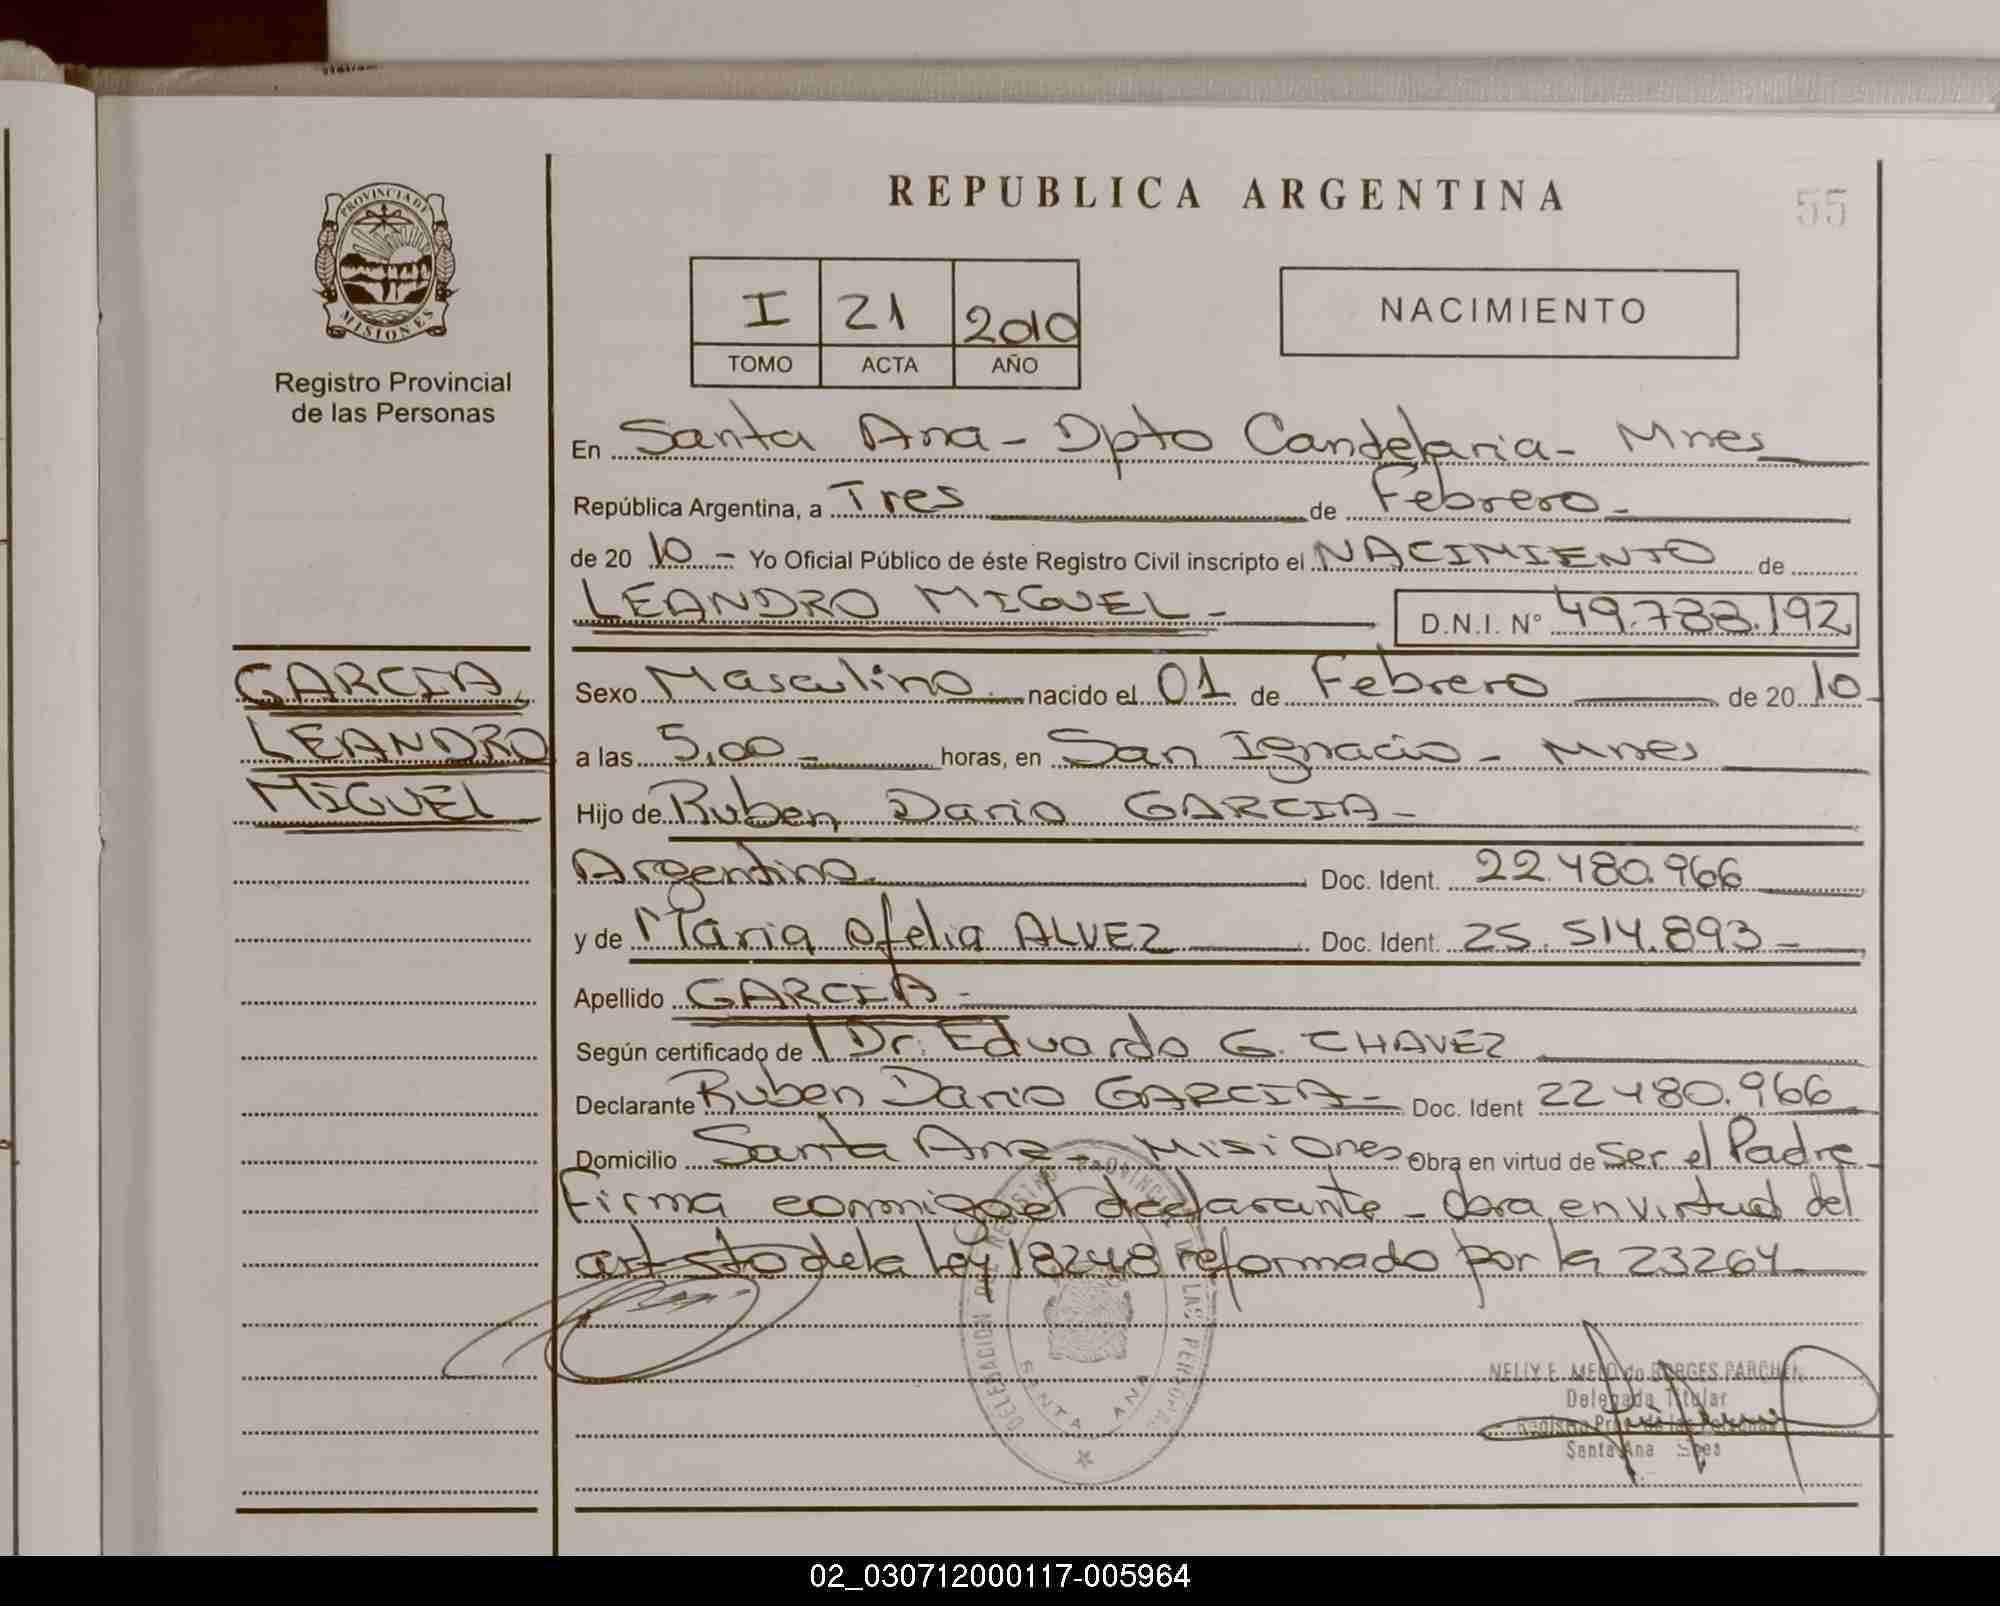 REPUBLICA ARGENTINA
55
PROVINCIA DE
MISIONES
Registro Provincial
de las Personas
I 21 2010
TOMO ACTA AÑO
NACIMIENTO
En Santa Ana - Dpto Candelaria - Mnes
República Argentina, a Tres de Febrero -
de 20 10 - Yo Oficial Público de éste Registro Civil inscripto el NACIMIENTO de
LEANDRO MIGUEL - D.N.I. N° 49.788.192
GARCIA,
LEANDRO
MIGUEL
Sexo Masculino nacido el 01 de Febrero de 20 10
a las 5,00 - horas, en San Ignacio - Mnes
Hijo de Ruben Dario GARCIA -
Argentino Doc. Ident. 22.480.966
y de Maria Ofelia ALVEZ Doc. Ident. 25.514.893 -
Apellido GARCIA -
Según certificado de Dr. Eduardo G. CHAVEZ
Declarante Ruben Dario GARCIA - Doc. Ident 22480.966
Domicilio Santa Ana - Misiones Obra en virtud de ser el Padre
Firma conmigo el declarante - obra en virtud del
art 5to de la ley 18248 reformado por la 23264
DELEGACION DEL REGISTRO PROVINCIAL DE LAS PERSONAS
SANTA ANA
NELLY E. MELO de BORGES PARCHEN
Delegada Titular
Registro Prov. de las Personas
Santa Ana Mnes
02_030712000117-005964